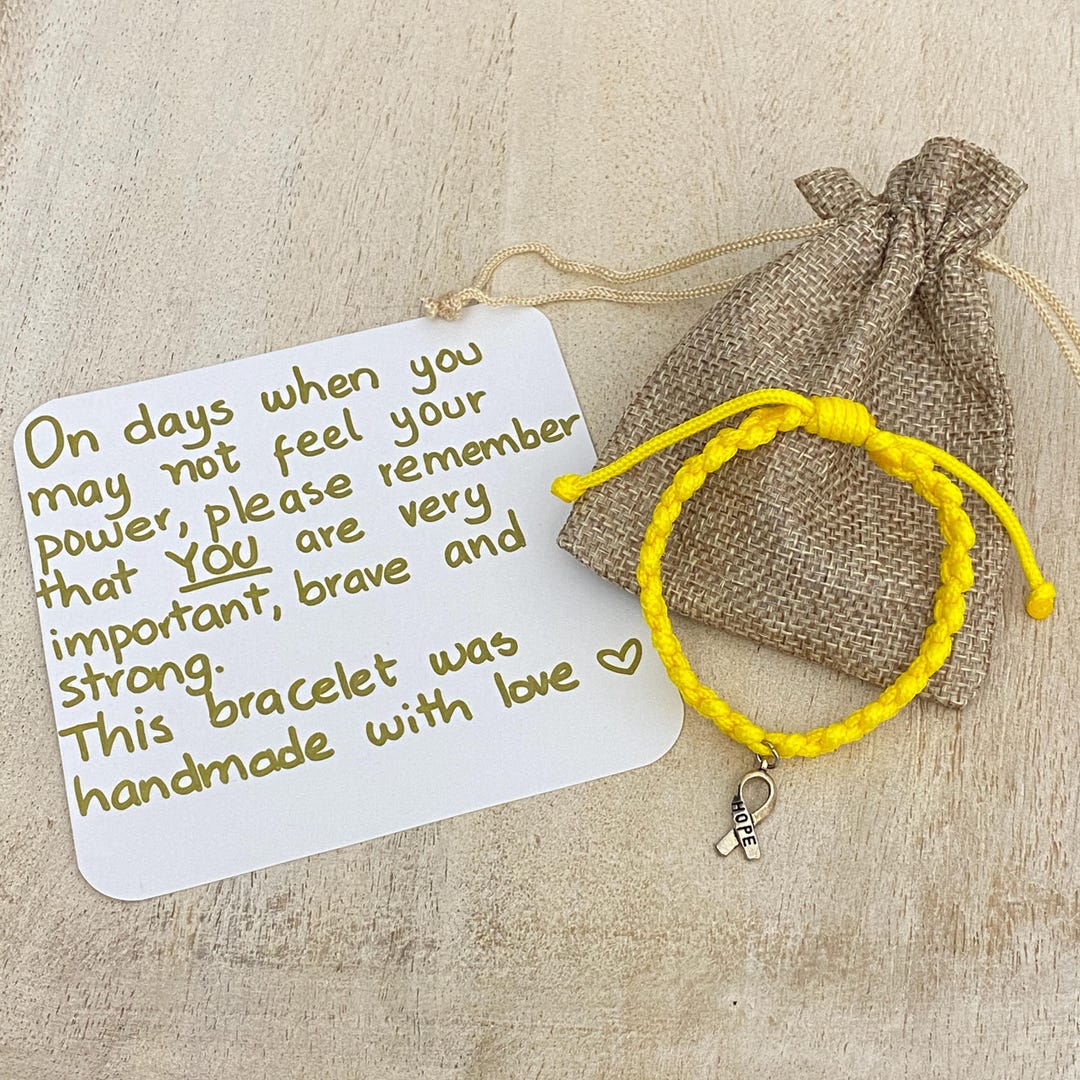 On days when you
may not feel your
power, please remember
that YOU are very
important, brave and
strong.
This bracelet was
handmade with love ♡
HOPE